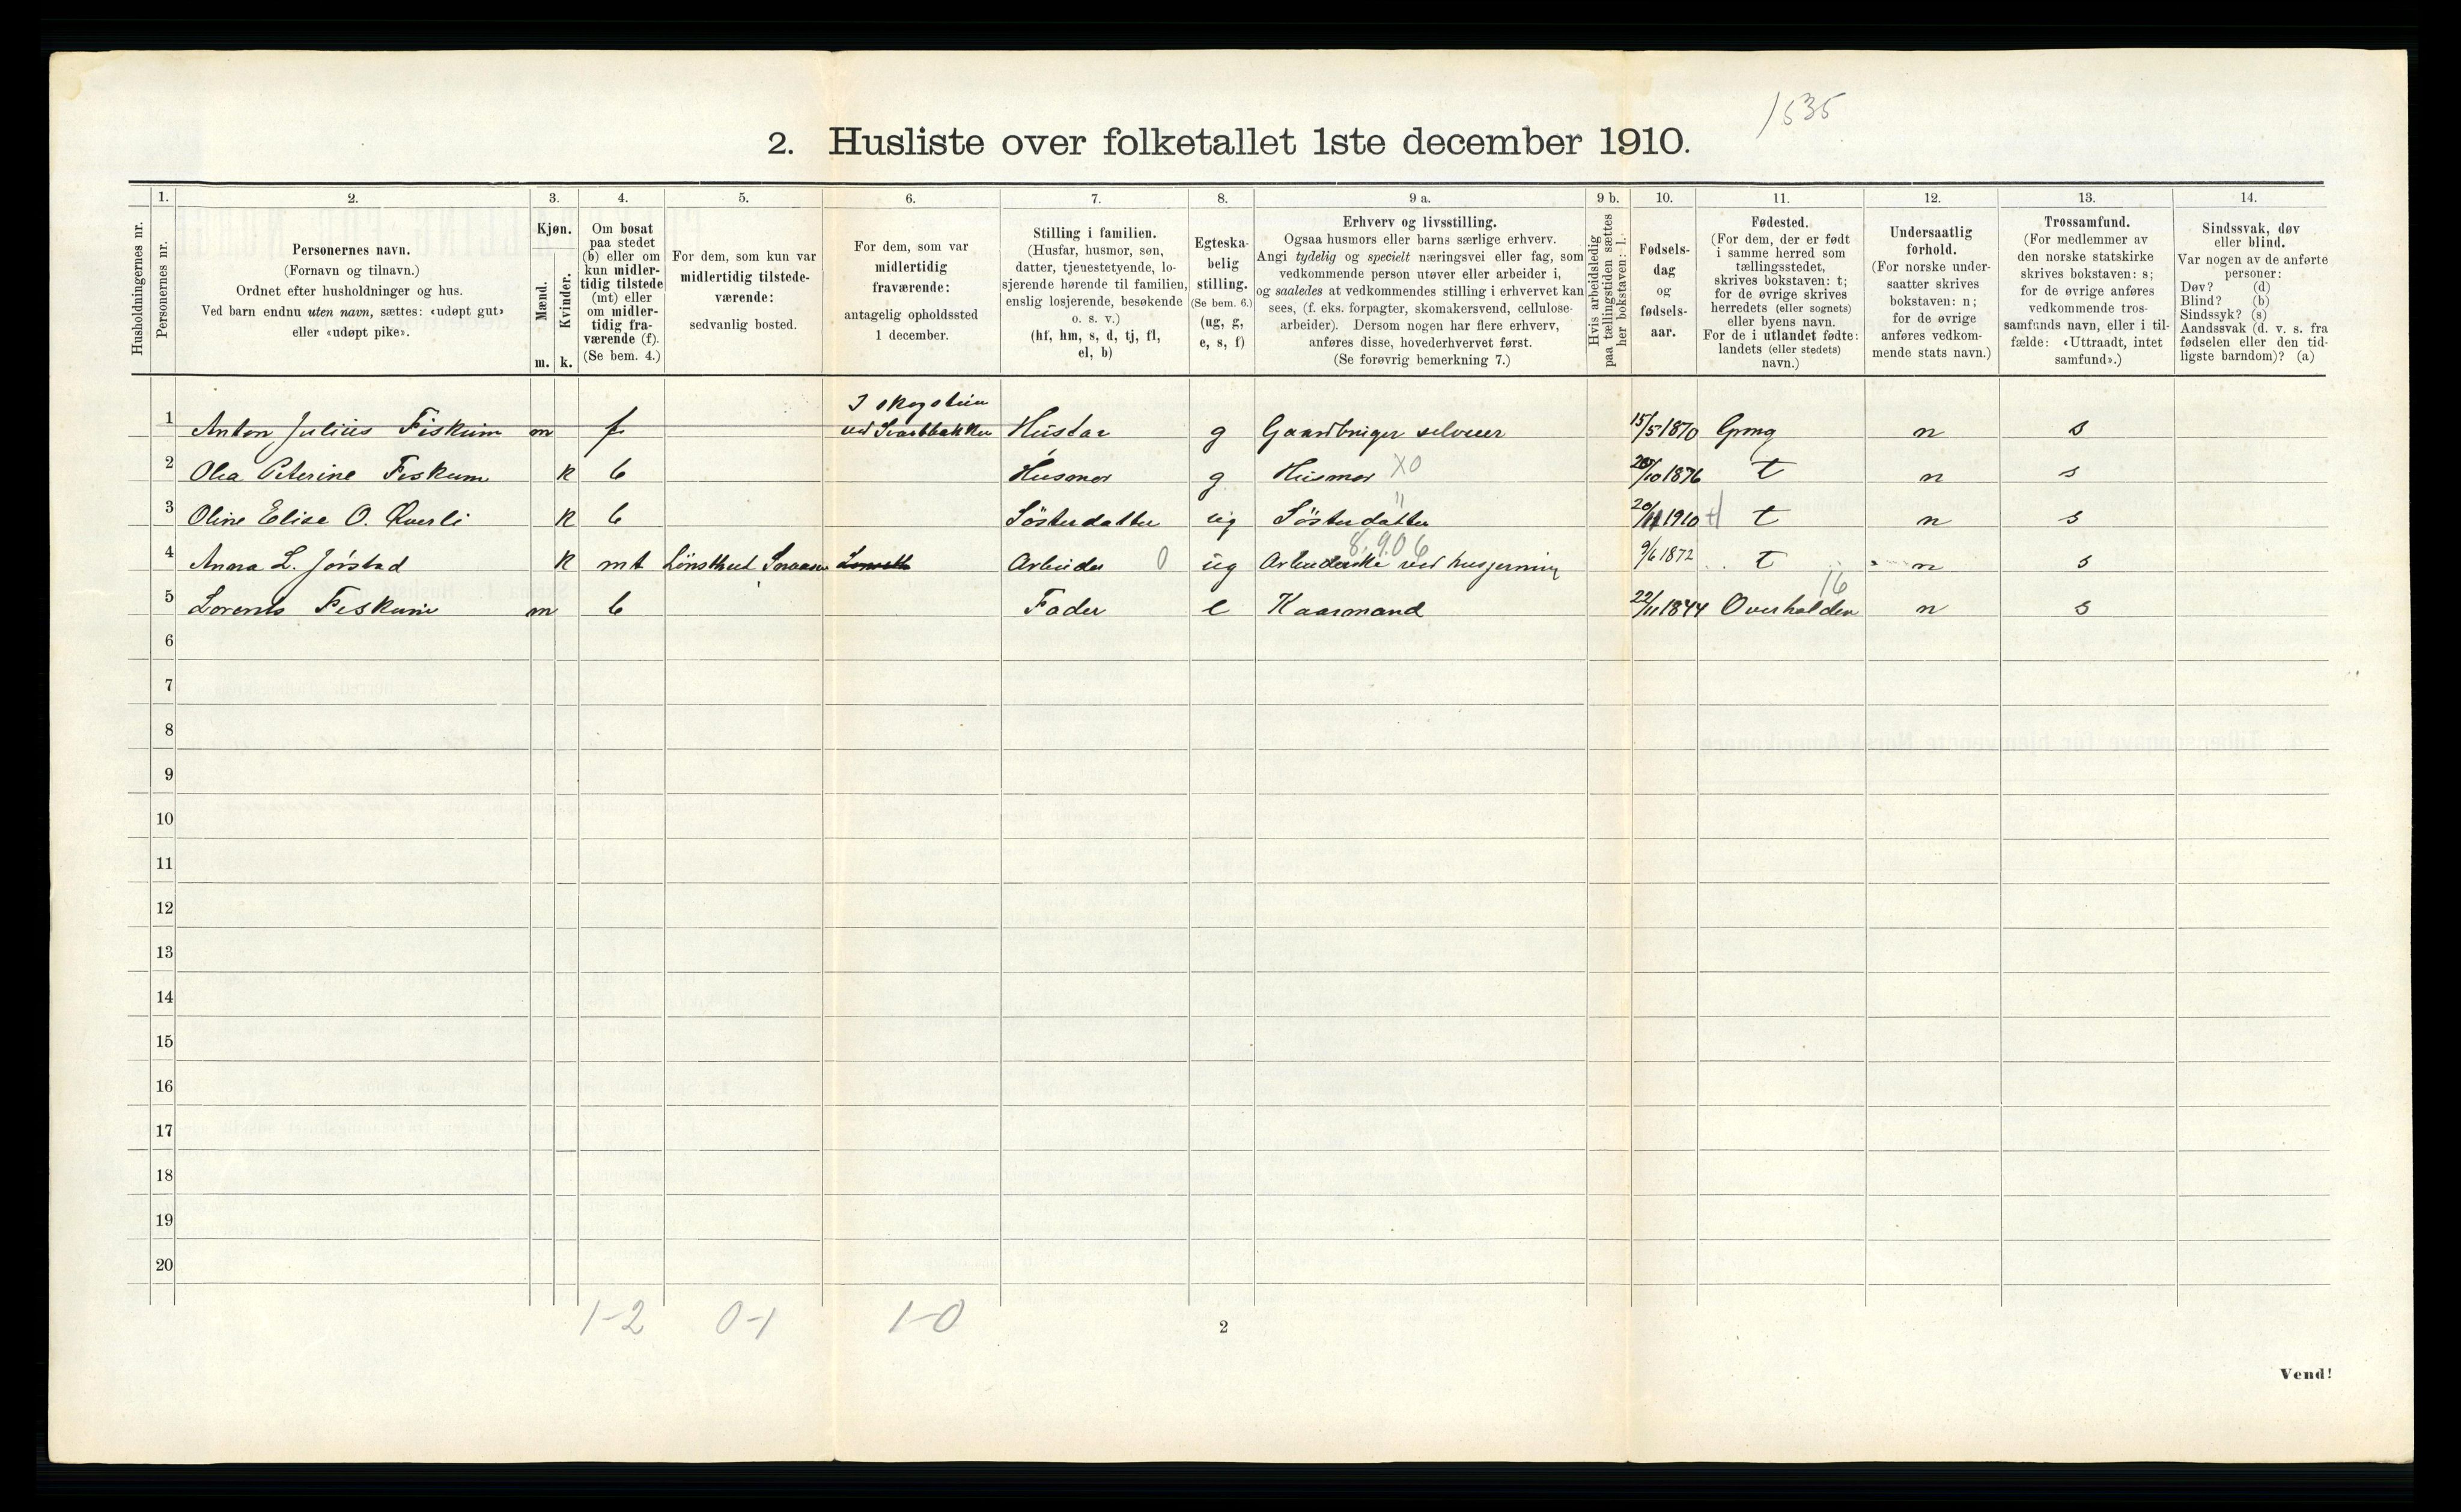 1535
2. Husliste over folketallet 1ste december 1910.
Husholdningernes nr.
1.
Personernes nr.
2.
Personernes navn.
(Fornavn og tilnavn.)
Ordnet efter husholdninger og hus.
Ved barn endnu uten navn, sættes: «udøpt gut»
eller «udøpt pike».
3.
Kjøn.
Mænd.
Kvinder.
m. k.
4.
Om bosat
paa stedet
(b) eller om
kun midler-
tidig tilstede
(mt) eller
om midler-
tidig fra-
værende (f).
(Se bem. 4.)
5.
For dem, som kun var
midlertidig tilstede-
værende:
sedvanlig bosted.
6.
For dem, som var
midlertidig
fraværende:
antagelig opholdssted
1 december.
7.
Stilling i familien.
(Husfar, husmor, søn,
datter, tjenestetyende, lo-
sjerende hørende til familien,
enslig losjerende, besøkende
o. s. v.)
(hf, hm, s, d, tj, fl,
el, b)
8.
Egteska-
belig
stilling.
(Se bem. 6.)
(ug, g,
e, s, f)
9 a.
Erhverv og livsstilling.
Ogsaa husmors eller barns særlige erhverv.
Angi tydelig og specielt næringsvei eller fag, som
vedkommende person utøver eller arbeider i,
og saaledes at vedkommendes stilling i erhvervet kan
sees, (f. eks. forpagter, skomakersvend, cellulose-
arbeider). Dersom nogen har flere erhverv,
anføres disse, hovederhvervet først.
(Se forøvrig bemerkning 7.)
9 b.
Hvis arbeidsledig
paa tællingstiden sættes
her bokstaven: l.
10.
Fødsels-
dag
og
fødsels-
aar.
11.
Fødested.
(For dem, der er født
i samme herred som
tællingsstedet,
skrives bokstaven: t;
for de øvrige skrives
herredets (eller sognets)
eller byens navn.
For de i utlandet fødte:
landets (eller stedets)
navn.)
12.
Undersaatlig
forhold.
(For norske under-
saatter skrives
bokstaven: n;
for de øvrige
anføres vedkom-
mende stats navn.)
13.
Trossamfund.
(For medlemmer av
den norske statskirke
skrives bokstaven: s;
for de øvrige anføres
vedkommende tros-
samfunds navn, eller i til-
fælde: «Uttraadt, intet
samfund».)
14.
Sindssvak, døv
eller blind.
Var nogen av de anførte
personer:
Døv? (d)
Blind? (b)
Sindssyk? (s)
Aandssvak (d. v. s. fra
fødselen eller den tid-
ligste barndom)? (a)
1 Anton Julius Fiskum m f Husfar g Gaardbruger selveier 15/5 1870 Grong n s
2 Olea Peterine Fiskum k b Husmor g Husmor X0 1876 t n s
3 Oline Elise O. Kverli k b Søsterdatter ug Søsterdatter " 20/11 1910 t n s
8.9.06
4 Anna L. Jørstad k mt Snaasen Arbeider 0 ug Arbeiderske ved husgjerning 9/6 1872 t n s
16
5 Lorents Fiskum m b Fader e Kaarmand 22/11 1844 Overhalden n s
6
7
8
9
10
11
12
13
14
15
16
17
18
19
20
1-2 0-1 1-0
2
Vend!